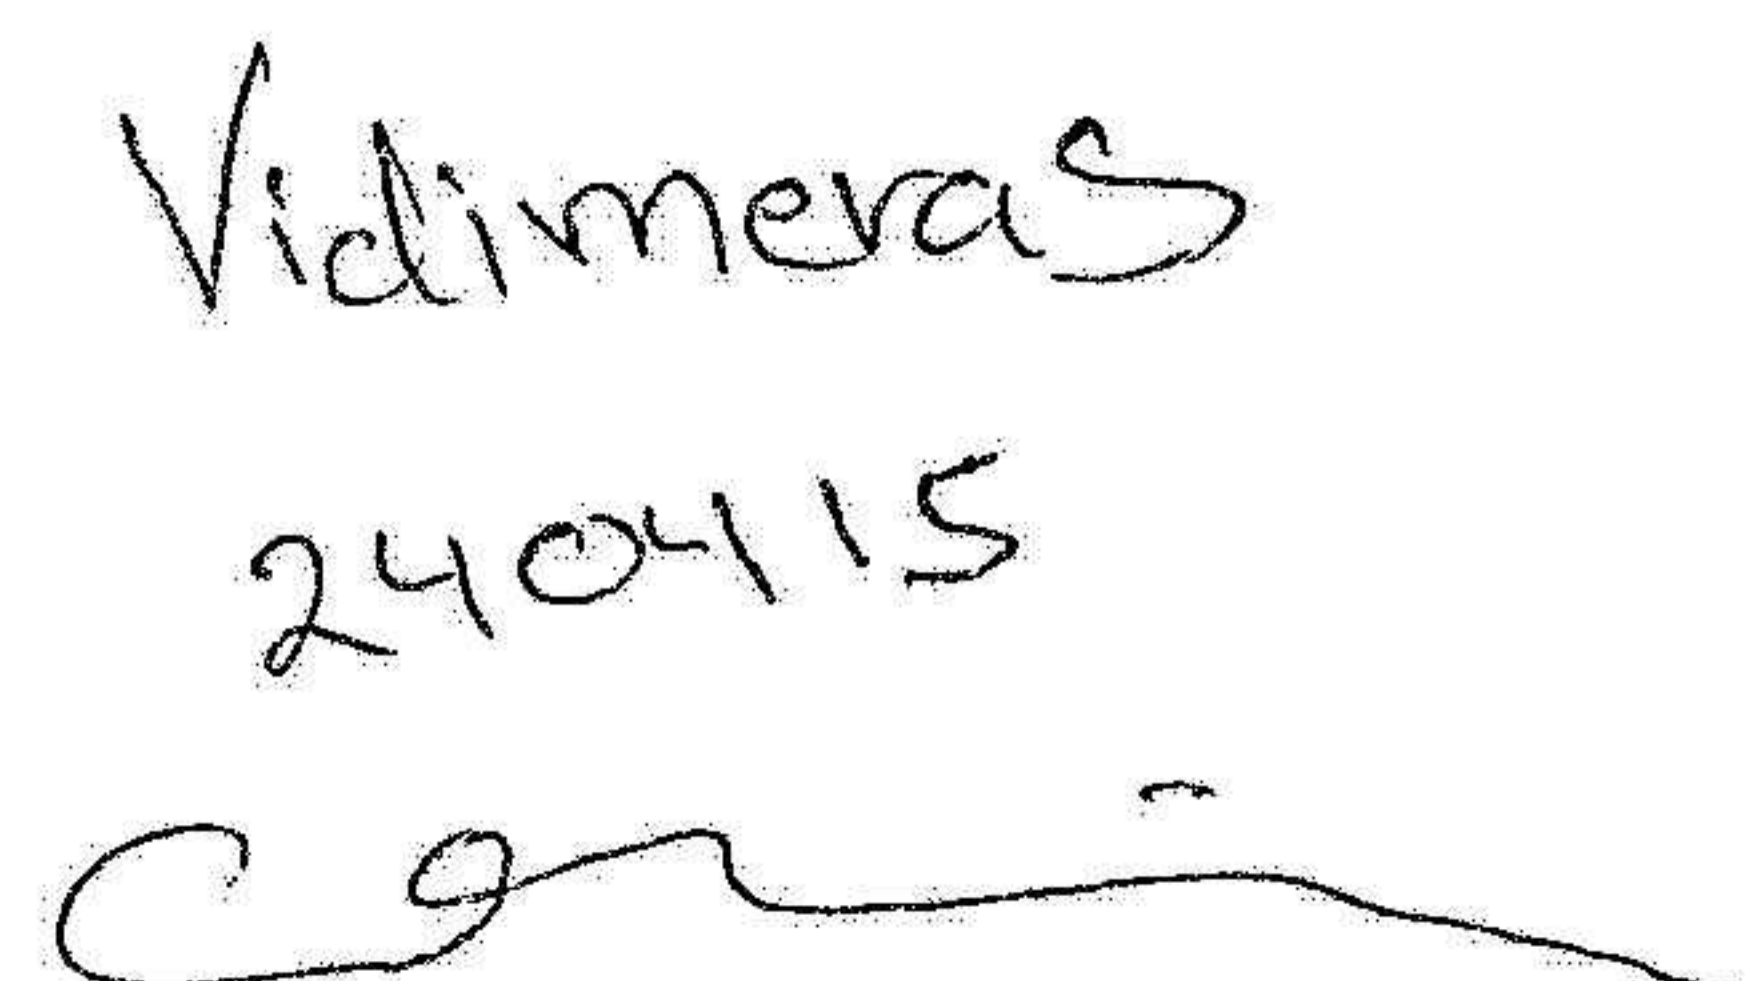 Vidimeras
240415